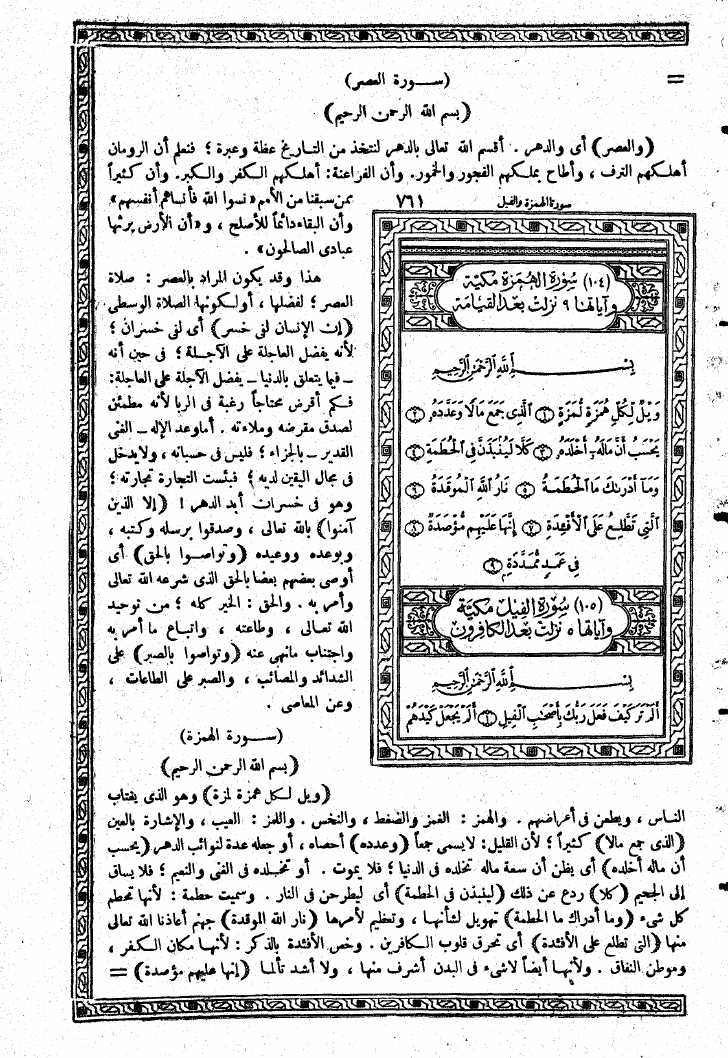 =
(سورة العصر)
(بسم الله الرحمن الرحيم)
(والعصر) أى والدهر . أقسم الله تعالى بالدهر لنتخذ من التاريخ عظة وعبرة ؛ فنعلم أن الرومان
أهلكهم الترف ، وأطاح بملكهم الفجور والخمور. وأن الفراعنة: أهلكهم الكفر والكبر. وأن كثيراً
ممن سبقنا من الأمم «نسوا الله فأنساهم أنفسهم»
وأن البقاء دائماً للأصلح ، و«أن الأرض يرثها
عبادى الصالحون» .
هذا وقد يكون المراد بالعصر : صلاة
العصر ؛ لفضلها ، أو لكونها الصلاة الوسطى
(إن الإنسان لفى خسر) أى لفى خسران ؛
لأنه يفضل العاجلة على الآجلة ؛ فى حين أنه
ـ فيما يتعلق بالدنيا ـ يفضل الآجلة على العاجلة:
فكم أقرض محتاجاً رغبة فى الربا لأنه مطمئن
لصدق مقرضه وملاءته . أما وعد الإله ـ الغنى
القدير ـ بالجزاء ؛ فليس فى حسبانه ، ولا يدخل
فى مجال اليقين لديه ؛ فبئست التجارة تجارته ؛
وهو فى خسران أبد الدهر ! (إلا الذين
آمنوا) بالله تعالى ، وصدقوا برسله وكتبه ،
وبوعده ووعيده (وتواصوا بالحق) أى
أوصى بعضهم بعضا بالحق الذى شرعه الله تعالى
وأمر به . والحق : الخير كله ؛ من توحيد
الله تعالى ، وطاعته ، واتباع ما أمر به
واجتناب ما نهى عنه (وتواصوا بالصبر) على
الشدائد والمصائب ، والصبر على الطاعات ،
وعن المعاصى .
(سورة الهمزة)
(بسم الله الرحمن الرحيم)
(ويل لكل همزة لمزة) وهو الذى يغتاب
سورتا الهمزة والفيل ٧٦١
(١٠٤) سُورَةُ الهُمَزَة مَكيَّة
وَآيَاتُهَا ٩ نَزَلَت بَعْدَ القِيَامَة
بِسْمِ ٱللَّهِ ٱلرَّحْمَٰنِ ٱلرَّحِيمِ
وَيْلٌ لِّكُلِّ هُمَزَةٍ لُّمَزَةٍ ١ ٱلَّذِى جَمَعَ مَالًا وَعَدَّدَهُۥ ٢
يَحْسَبُ أَنَّ مَالَهُۥٓ أَخْلَدَهُۥ ٣ كَلَّا لَيُنۢبَذَنَّ فِى ٱلْحُطَمَةِ ٤
وَمَآ أَدْرَىٰكَ مَا ٱلْحُطَمَةُ ٥ نَارُ ٱللَّهِ ٱلْمُوقَدَةُ ٦
ٱلَّتِى تَطَّلِعُ عَلَى ٱلْأَفْـِٔدَةِ ٧ إِنَّهَا عَلَيْهِم مُّؤْصَدَةٌ ٨
فِى عَمَدٍ مُّمَدَّدَةٍۭ ٩
(١٠٥) سُورَةُ الفِيل مَكيَّة
وَآيَاتُهَا ٥ نَزَلَت بَعْدَ الكافِرُون
بِسْمِ ٱللَّهِ ٱلرَّحْمَٰنِ ٱلرَّحِيمِ
أَلَمْ تَرَ كَيْفَ فَعَلَ رَبُّكَ بِأَصْحَٰبِ ٱلْفِيلِ ١ أَلَمْ يَجْعَلْ كَيْدَهُمْ
الناس ، ويطعن فى أعراضهم . والهمز : الغمز والضغط ، والنخس . واللمز : العيب ، والإشارة بالعين
(الذى جمع مالا) كثيراً ؛ لأن القليل: لا يسمى جمعاً (وعدده) أحصاه ، أو جعله عدة لنوائب الدهر (يحسب
أن ماله أخلده) أى يظن أن سعة ماله تخلده فى الدنيا ؛ فلا يموت . أو تخلده فى الغنى والنعيم ؛ فلا يساق
إلى الجحيم (كلا) ردع عن ذلك (لينبذن فى الحطمة) أى ليطرحن فى النار . وسميت حطمة : لأنها تحطم
كل شىء (وما أدراك ما الحطمة) تهويل لشأنها ، وتعظيم لأمرها (نار الله الموقدة) جهنم أعاذنا الله تعالى
منها (التى تطلع على الأفئدة) أى تحرق قلوب الكافرين . وخص الأفئدة بالذكر : لأنها مكان الكفر ،
وموطن النفاق . ولأنها أيضاً لا شىء فى البدن أشرف منها ، ولا أشد تألما (إنها عليهم مؤصدة) =